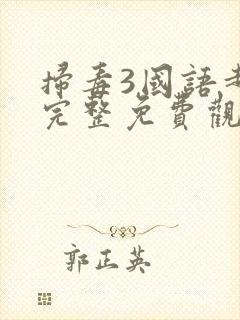 掃毒3國語
完整免費觀
郭正英